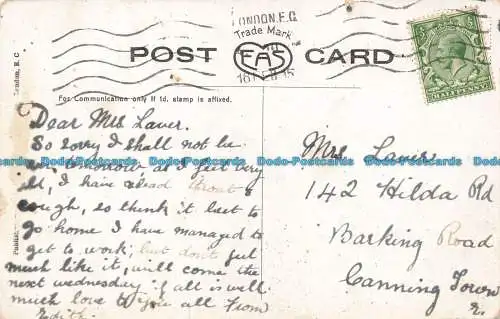 LONDON, E.C.
Trade Mark
POST EAS CARD
16 FEB 15
For Communication only ½d. stamp is affixed.
London, E.C
Dear Mrs Laver.
So sorry I shall not be
tomorrow, as I feel very
I have a bad throat &
cough, so think it best to
go home I have managed to
get to work, but don't feel
much like it, will come the
next wednesday if all is well.
much love to you all from
Edith.
Mrs Laver
142 Hilda Rd
Barking Road
Canning Town
E.
HALF PENNY
Postcards Info-Postcards Info-Postcards